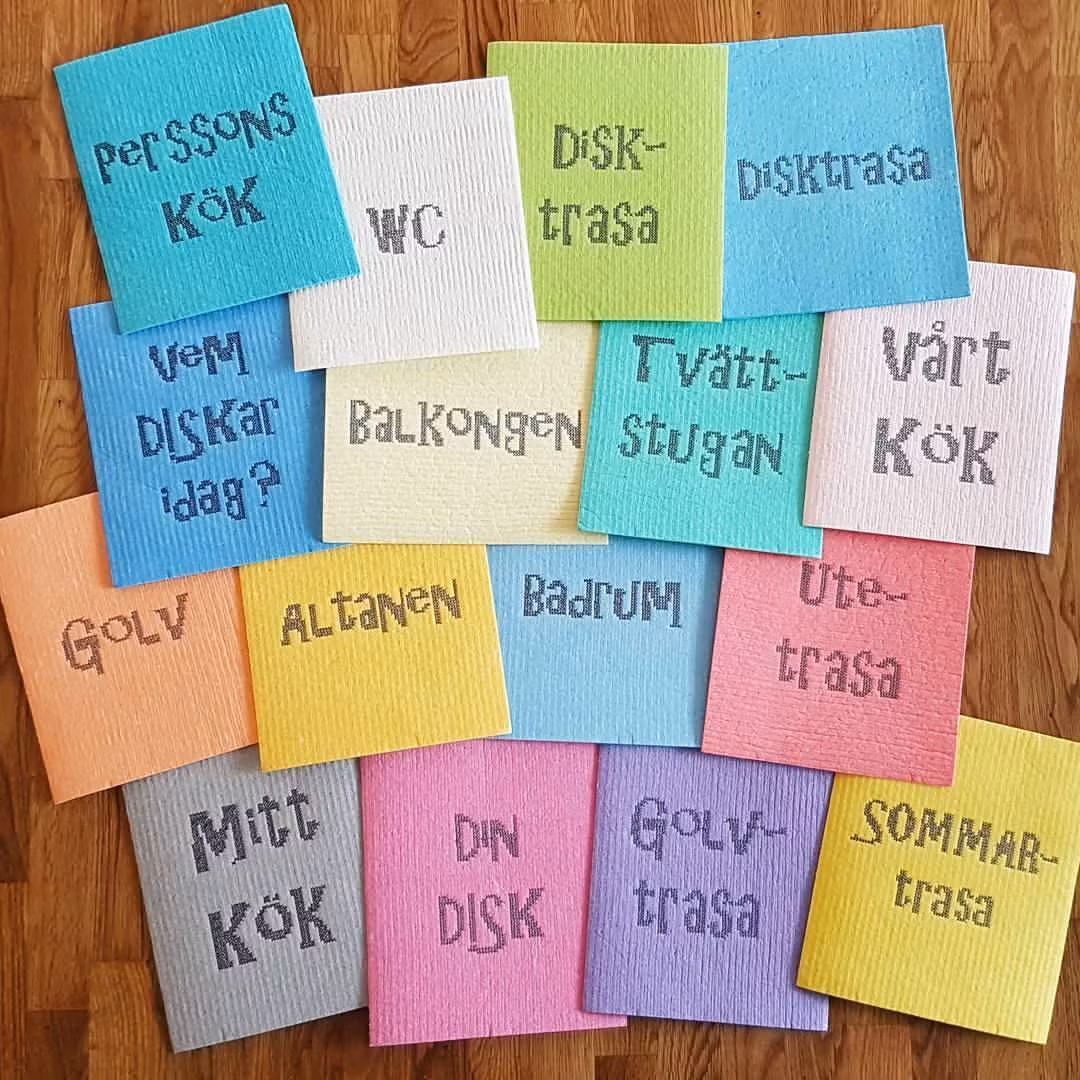 Perssons
Kök
WC
Disk-
trasa
Disktrasa
Vem
Diskar
idag?
Balkongen
Tvätt-
stugan
Vårt
Kök
Golv
Altanen
Badrum
Ute-
trasa
Mitt
Kök
Din
Disk
Golv-
trasa
Sommar-
trasa